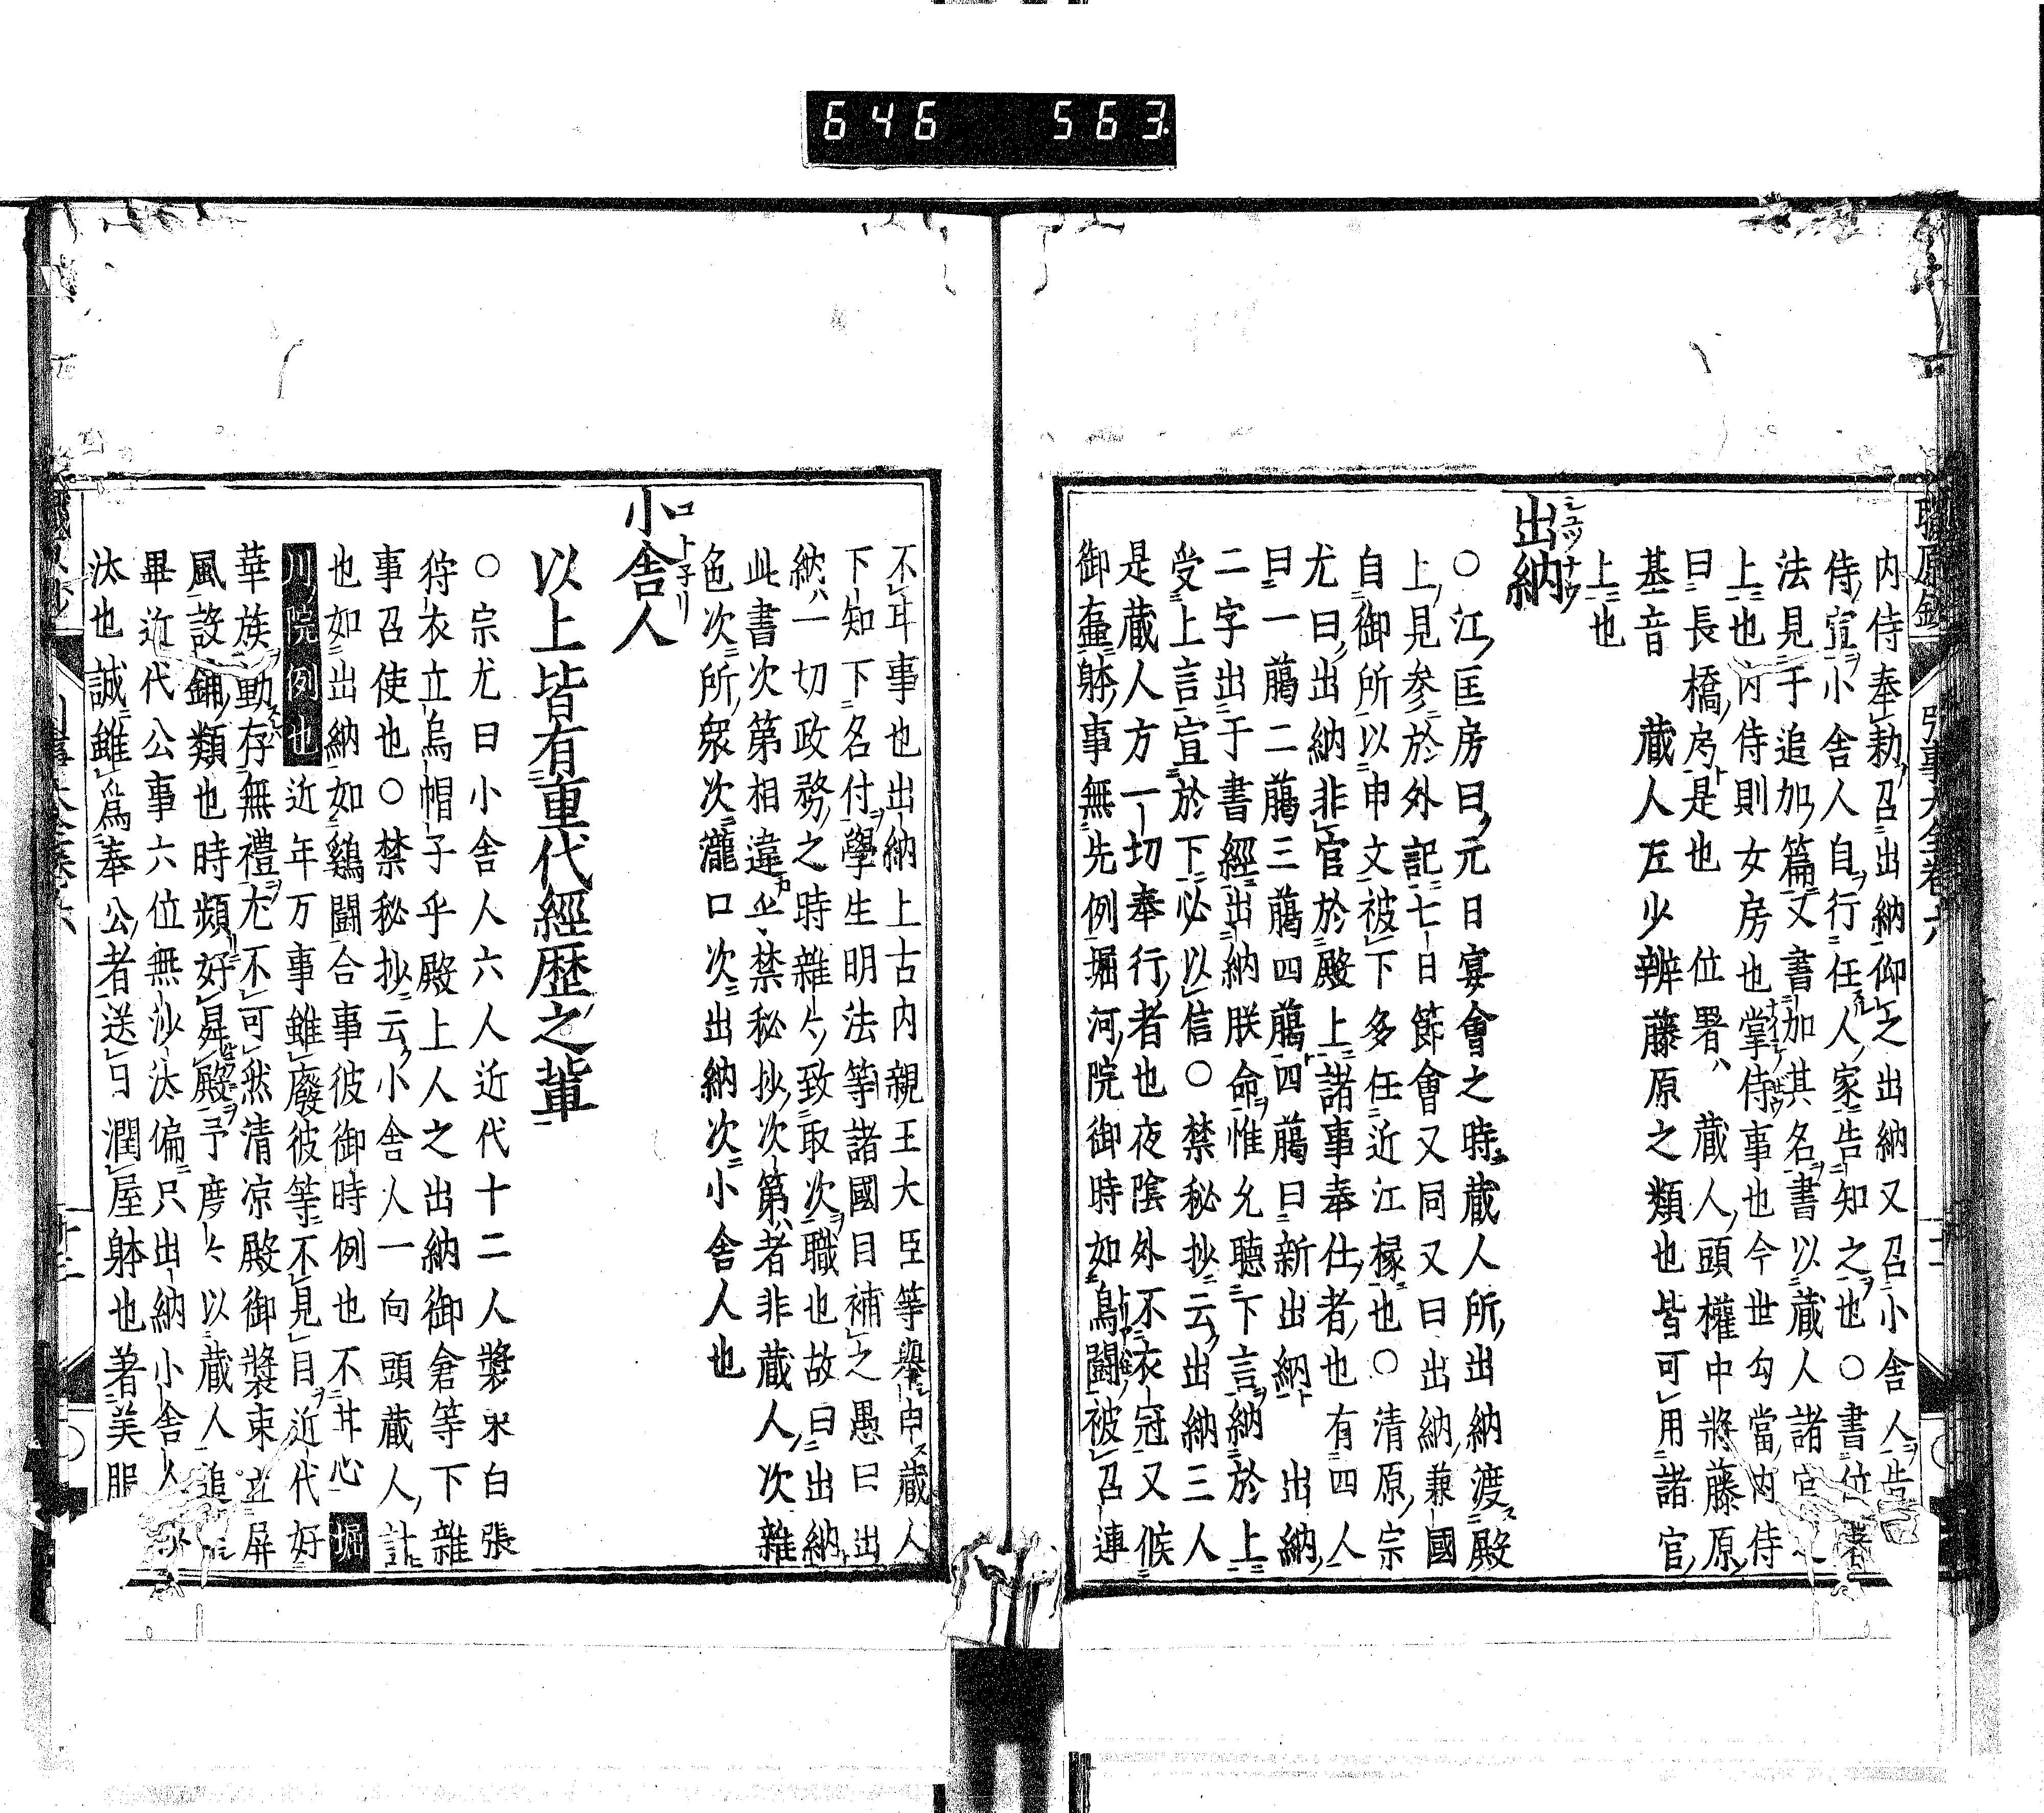 646 563
職原鈔 引事大全卷六
内侍奉勅召出納仰之出納又召小舎人告
侍宣小舎人自行任人家告知之也○書位者
法見于追加篇又書加其名書以蔵人諸官
上也内侍則女房也掌侍事也今世勾當内侍
曰長橋房是也 位署ハ 蔵人頭權中將藤原
基音 蔵人左少辨藤原之類也皆可用諸官
上也
出納
○江匡房曰元日宴會之時蔵人所出納渡殿
上見参於外記七日節會又同又曰出納兼國
自御所以申文被下多任近江掾也○清原宗
尤曰出納非官於殿上諸事奉仕者也有四人
曰一﨟二﨟三﨟四﨟四﨟曰新出納 出納
二字出于書經出納朕命惟允聴下言納於上
受上言宣於下必以信○禁秘抄云出納三人
是蔵人方一切奉行者也夜陰外不衣冠又候
御壺躰事無先例堀河院御時如鳥闘被召連
不耳事也出納上古内親王大臣等擧申蔵人
下知下名付學生明法等諸國目補之愚曰出
納ハ一切政務之時雑々致取次職也故曰出納
此書次第相違也禁秘抄次第者非蔵人次雑
色次所衆次瀧口次出納次小舎人也
小舎人
以上皆有重代經歴之輩
○宗尤曰小舎人六人近代十二人装束白張
狩衣立烏帽子乎殿上人之出納御倉等下雑
事召使也○禁秘抄云小舎人一向頭蔵人計
也如出納如鷄闘合事彼御時例也不甘心堀
川院例也近年万事雖廢彼等不見目近代好
華族動存無禮尤不可然清凉殿御装束立屏
風設鋪類也時頻好昇殿予度々以蔵人追
畢近代公事六位無沙汰偏只出納小舎人
汰也誠雖爲奉公者送日潤屋躰也著美服